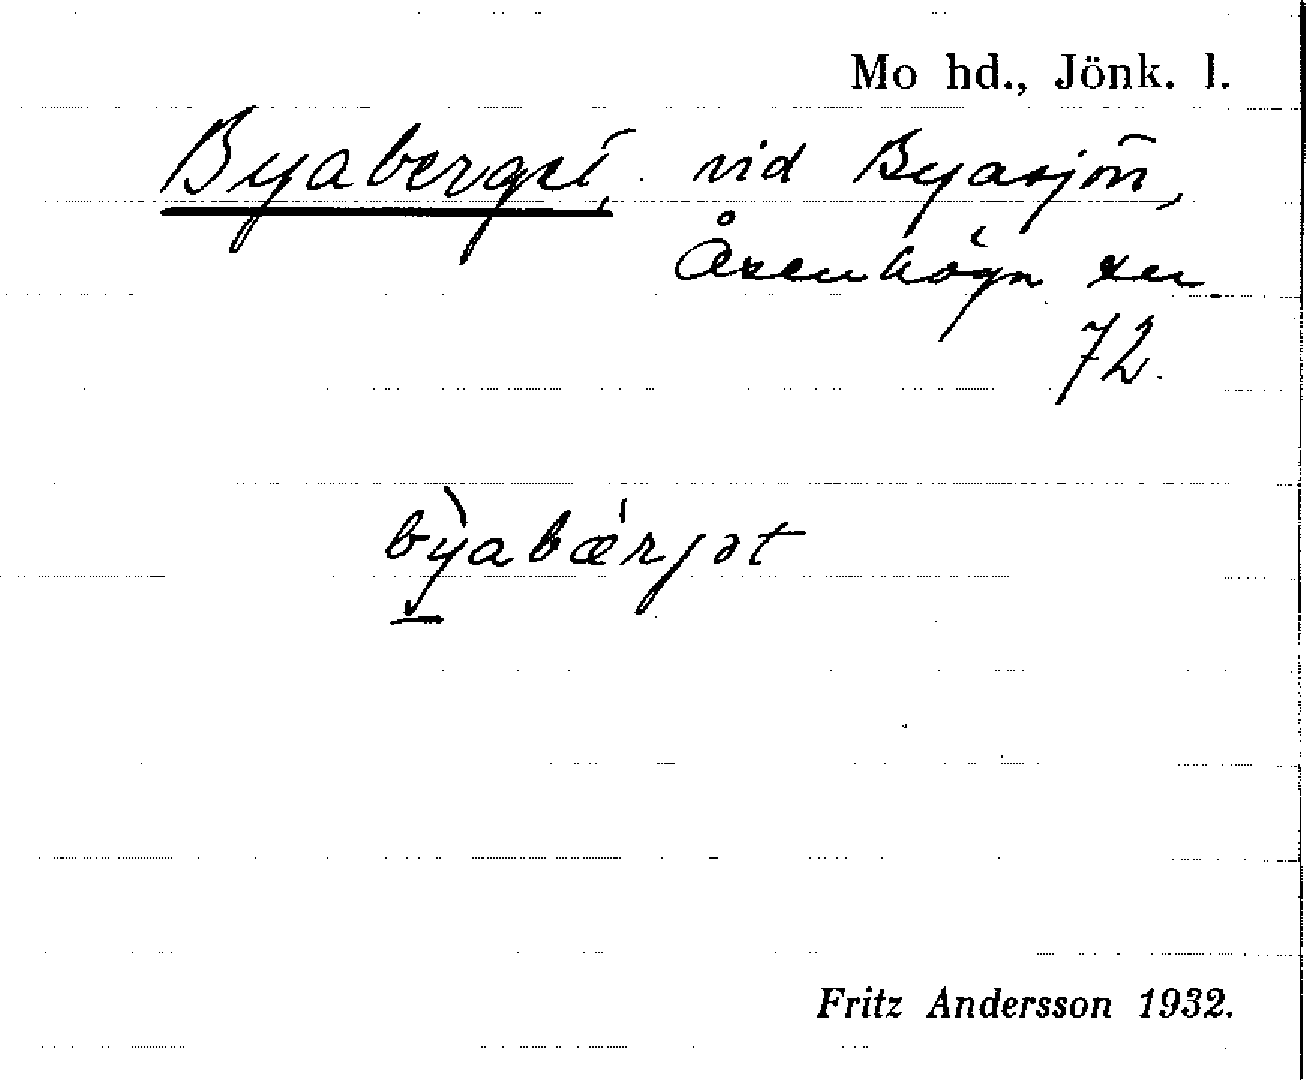 Mo hd., Jönk. l.
Byaberget, vid Byasjön,
Åsenhögn sn
72.
by̖abǽrjət
Fritz Andersson 1932.